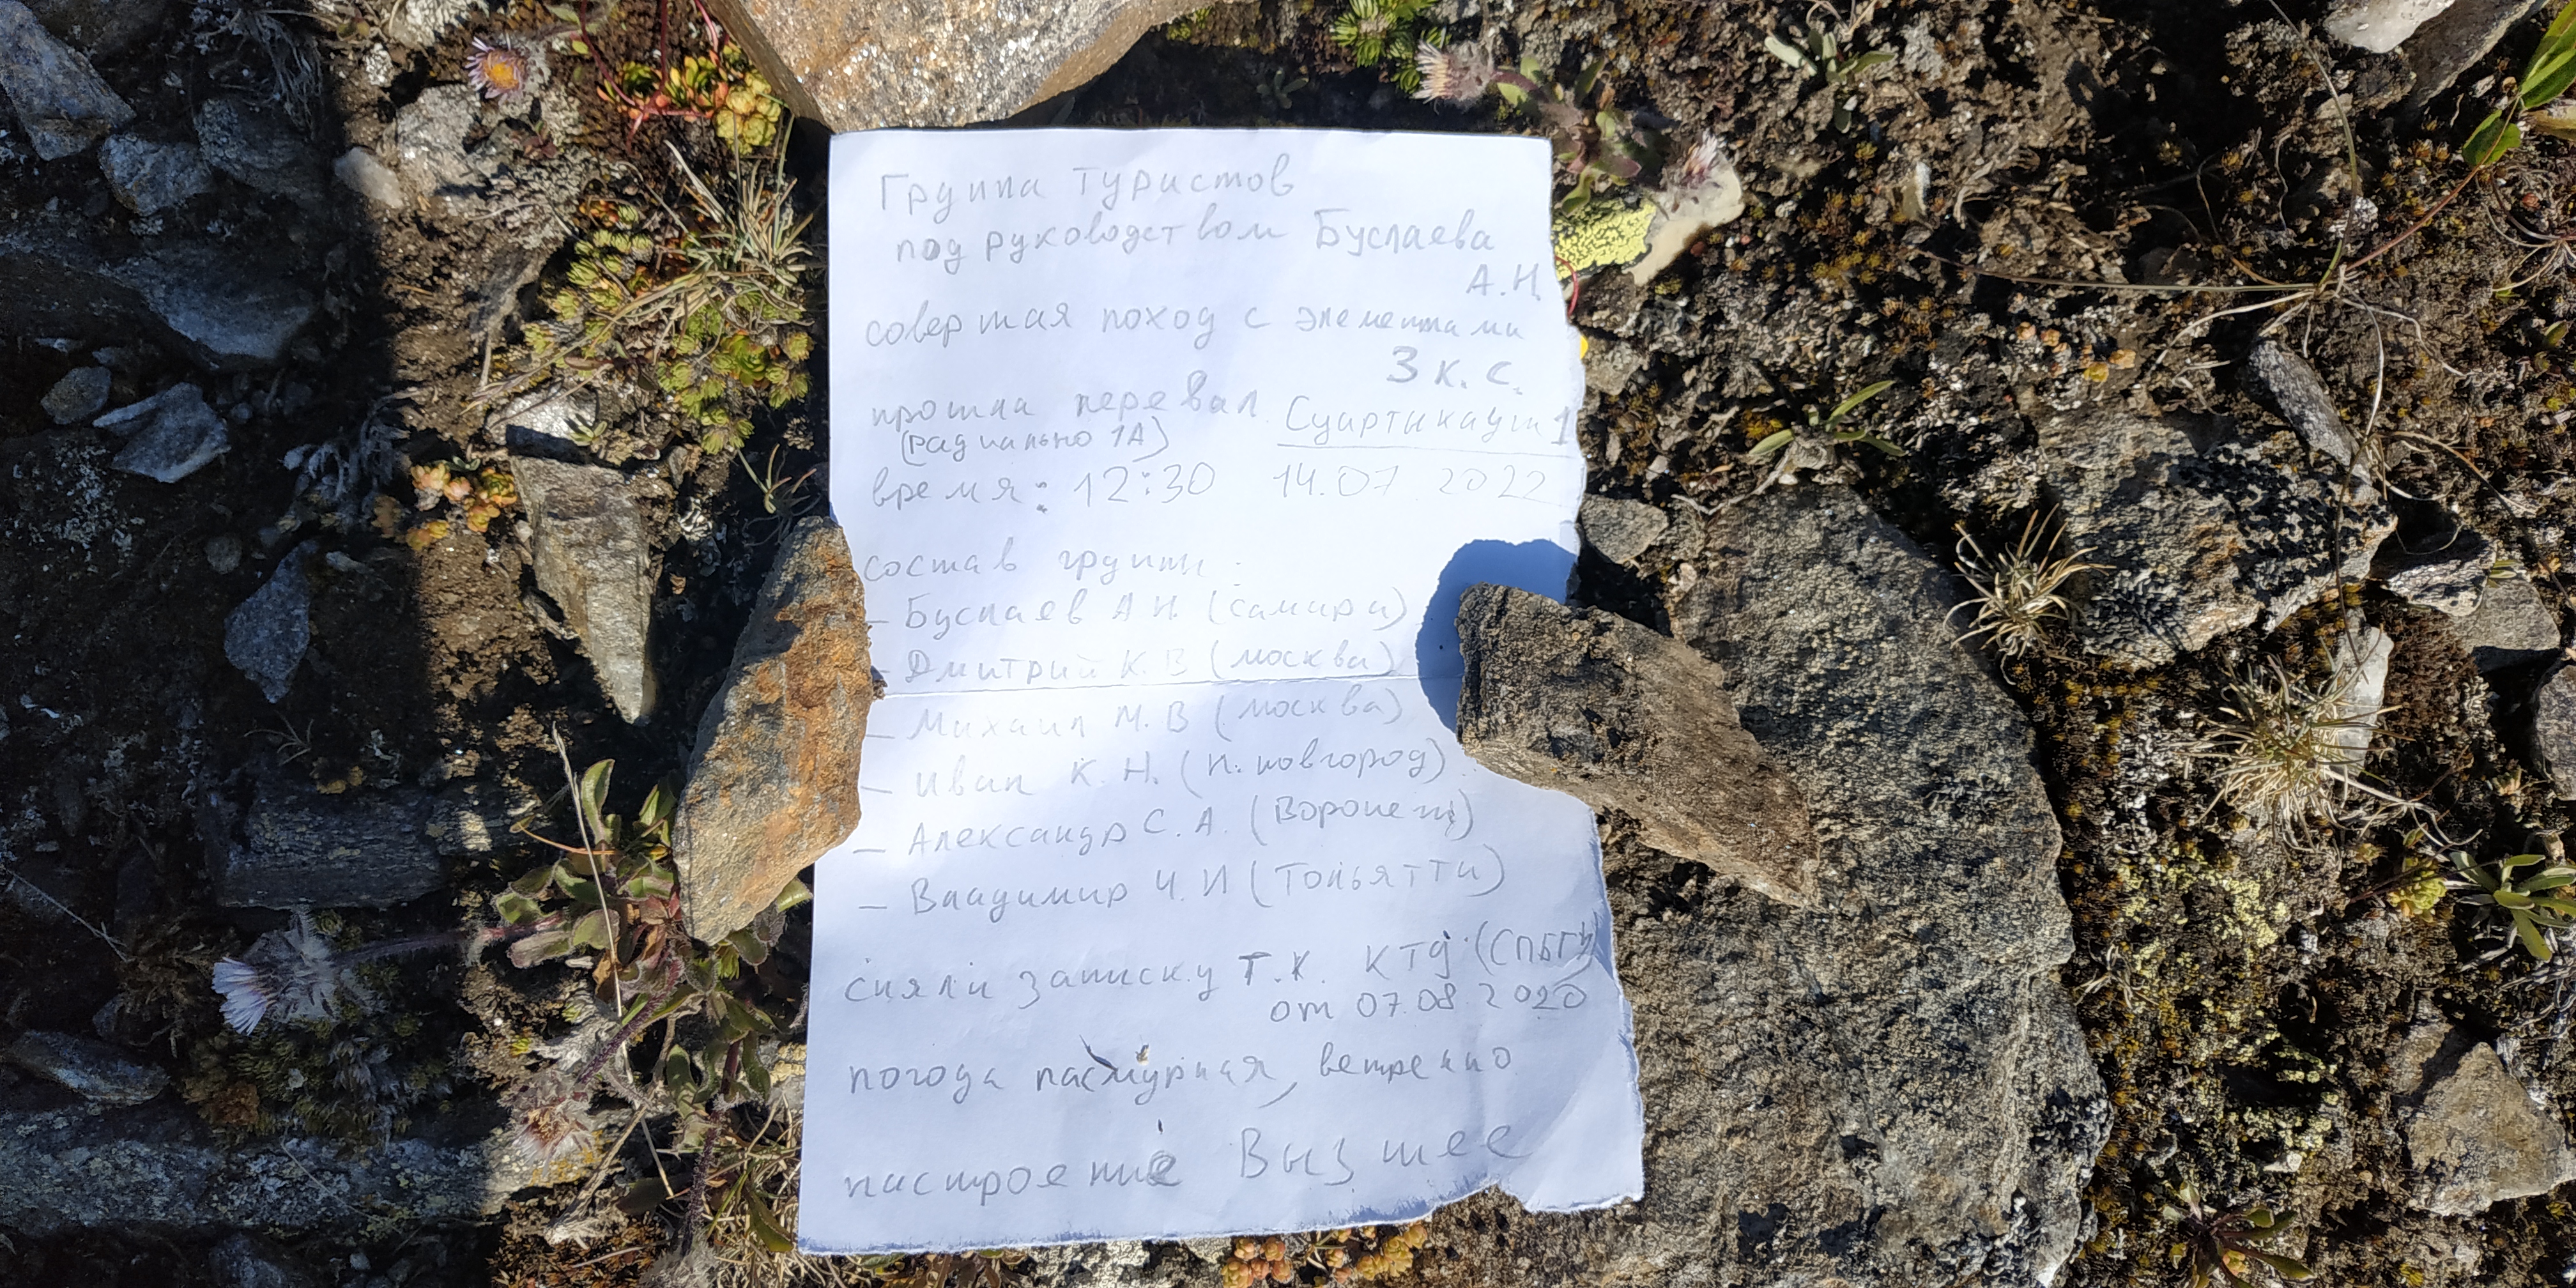 Группа туристов
под руководством Буслаева
А.Н.
совершая поход с элементами
3 к.с.
прошла перевал Суартикауш 1
(радиально 1А)
время: 12:30 14.07.2022
состав группы:
– Буслаев А.Н. (Самара)
– Дмитрий К.В (москва)
– Михаил М.В (москва)
– Иван К.Н. (Н.новгород)
– Александр С.А. (Воронеж)
– Владимир Ч.И (Тольятти)
сняли записку Т.К. КТД (СПбГУ)
от 07.08.2020
погода пасмурная, ветренно
настроение Вызшее